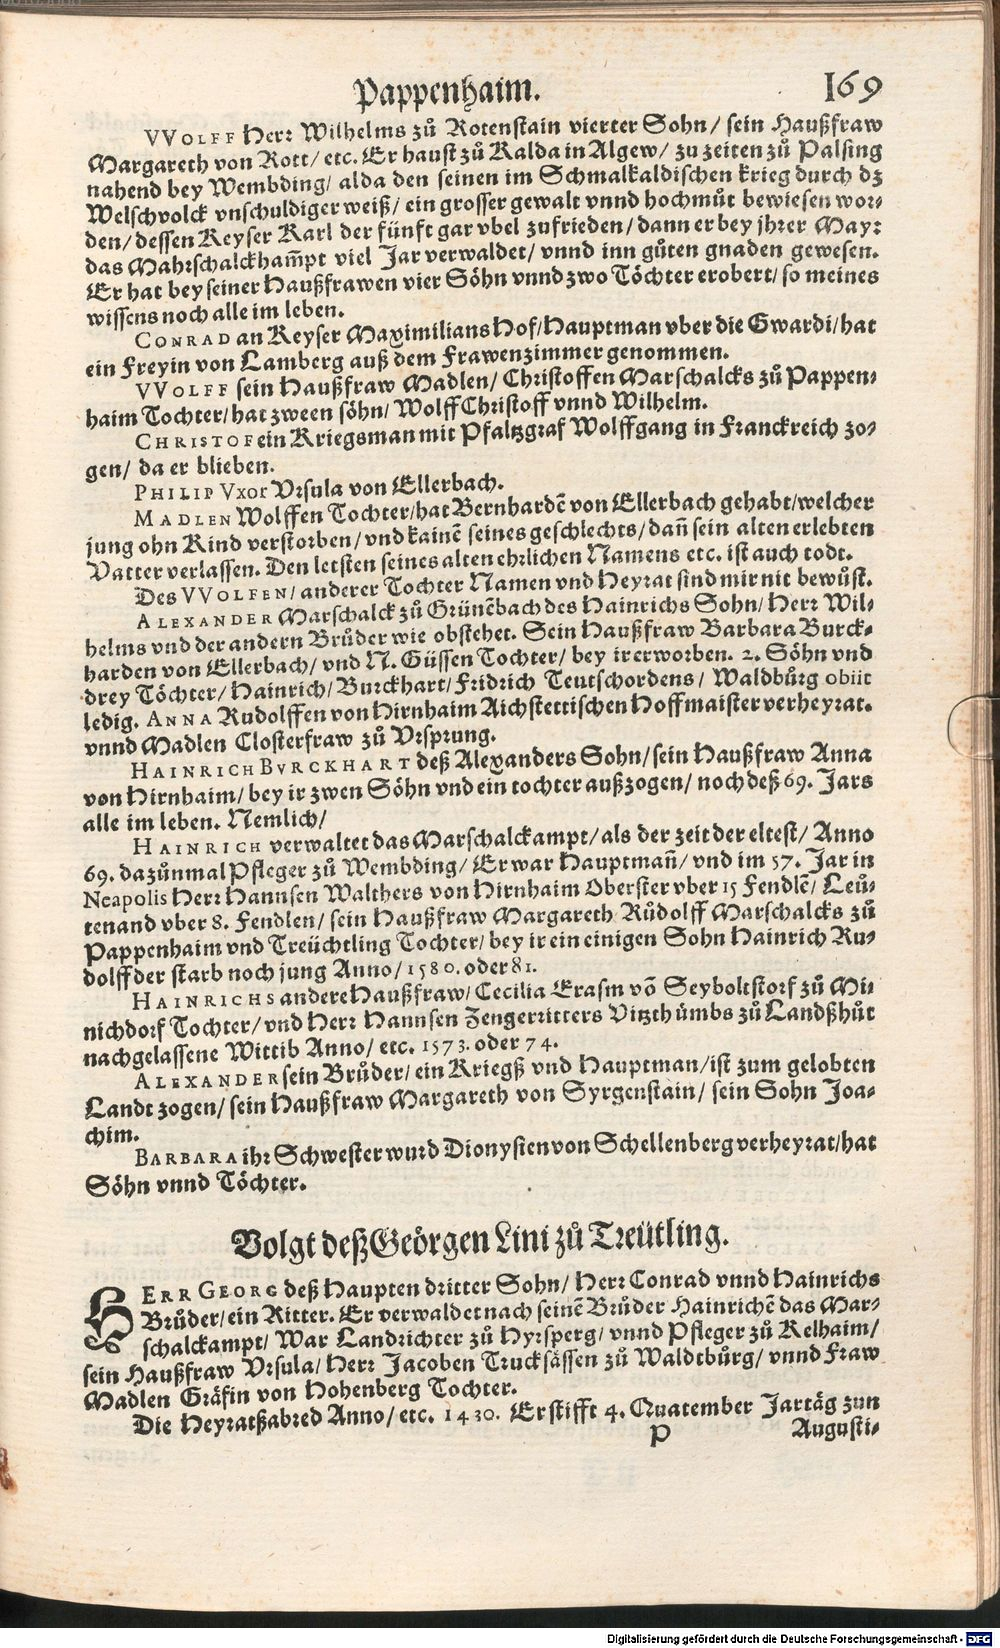 Pappenhaim. 169
VVOLFF Herr Wilhelms zů Rotenstain vierter Sohn/ sein Haußfraw
Margareth von Rott/ etc. Er haust zů Kalda in Algew/ zu zeiten zů Palsing
nahend bey Wembding/ alda den seinen im Schmalkaldischen krieg durch dz
Welschvolck vnschuldiger weiß/ ein grosser gewalt vnnd hochmůt bewiesen wor-
den/ dessen Keyser Karl der fünft gar vbel zufrieden/ dann er bey jhrer May:
das Mahrschalckham̃pt viel Jar verwaldet/ vnnd inn gůten gnaden gewesen.
Er hat bey seiner Haußfrawen vier Söhn vnnd zwo Töchter erobert/ so meines
wissens noch alle im leben.
CONRAD an Keyser Maximilians Hof/ Hauptman vber die Gwardi/ hat
ein Freyin von Lamberg auß dem Frawenzimmer genommen.
VVOLFF sein Haußfraw Madlen/ Christoffen Marschalcks zů Pappen-
haim Tochter/ hat zween söhn/ Wolff Christoff vnnd Wilhelm.
CHRISTOF ein Kriegsman mit Pfaltzgraf Wolffgang in Franckreich zo-
gen/ da er blieben.
PHILIP Vxor Vrsula von Ellerbach.
MADLEN Wolffen Tochter/ hat Bernhardẽ von Ellerbach gehabt/ welcher
jung ohn Kind verstorben/ vnd kainẽ seines geschlechts/ dañ sein alten erlebten
Vatter verlassen. Den letsten seines alten ehrlichen Namens etc. ist auch todt.
Des VVOLFEN/ anderer Tochter Namen vnd Heyrat sind mir nit bewůst.
ALEXANDER Marschalck zů Grünẽbach des Hainrichs Sohn/ Herr Wil-
helms vnd der andern Brůder wie obstehet. Sein Haußfraw Barbara Burck-
harden von Ellerbach/ vnd N. Güssen Tochter/ bey ir erworben. 2. Söhn vnd
drey Töchter/ Hainrich/ Burckhart/ Fridrich Teutschordens/ Waldbůrg obiit
ledig. ANNA Rudolffen von Hirnhaim Aichstettischen Hoffmaister verheyrat.
vnnd Madlen Closterfraw zů Vrsprung.
HAINRICH BVRCKHART deß Alexanders Sohn/ sein Haußfraw Anna
von Hirnhaim/ bey ir zwen Söhn vnd ein tochter außzogen/ noch deß 69. Jars
alle im leben. Nemlich/
HAINRICH verwaltet das Marschalckampt/ als der zeit der eltest/ Anno
69. dazůnmal Pfleger zů Wembding/ Er war Hauptmañ/ vnd im 57. Jar in
Neapolis Herr Hannsen Walthers von Hirnhaim Oberster vber 15 Fendlẽ/ Leů-
tenand vber 8. Fendlen/ sein Haußfraw Margareth Růdolff Marschalcks zů
Pappenhaim vnd Treüchtling Tochter/ bey ir ein einigen Sohn Hainrich Ru-
dolff der starb noch jung Anno/ 1580. oder 81.
HAINRICHS andere Haußfraw/ Cecilia Erasm võ Seyboltstorf zů Mi-
nichdorf Tochter/ vnd Herr Hannsen Zengerritters Vitzthůmbs zů Landßhůt
nachgelassene Wittib Anno/ etc. 1573. oder 74.
ALEXANDER sein Brůder/ ein Kriegß vnd Hauptman/ ist zum gelobten
Landt zogen/ sein Haußfraw Margareth von Syrgenstain/ sein Sohn Joa-
chim.
BARBARA ihr Schwester wurd Dionysien von Schellenberg verheyrat/ hat
Söhn vnnd Töchter.
Volgt deß Geörgen Lini zů Treütling.
HERR GEORG deß Haupten dritter Sohn/ Herr Conrad vnnd Hainrichs
Brůder/ ein Ritter. Er verwaldet nach seinẽ Brůder Hainrichẽ das Mar-
schalckampt/ War Landrichter zů Hyrsperg/ vnnd Pfleger zů Kelhaim/
sein Haußfraw Vrsula/ Herr Jacoben Trucksässen zů Waldtbůrg/ vnnd Fraw
Madlen Gräfin von Hohenberg Tochter.
Die Heyratßabred Anno/ etc. 1430. Er stifft 4. Quatember Jartäg zun
P Augusti-
Digitalisierung gefördert durch die Deutsche Forschungsgemeinschaft - DFG